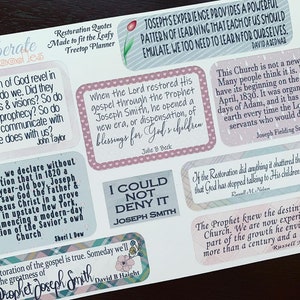 perate
Restoration Quotes
Made to fit the Leafy
Treetop Planner
JOSEPH'S EXPERIENCE PROVIDES A POWERFUL
PATTERN OF LEARNING THAT EACH OF US SHOULD
EMULATE. WE TOO NEED TO LEARN FOR OURSELVES.
DAVID A BEDNAR
of God revel in
do we. Did they
& visions? So do
prophecy? So do
communicate with
e does with us?
John Taylor
when the Lord restored His
gospel through the Prophet
Joseph Smith, he opened a
new era, or dispensation, of
blessings for God's children
Julie B Beck
This Church is not a new
Many people think it is,
have its beginning on the
April, 1830. It was organ
days of Adam, and it ha
earth every time the
servants who would d
Joseph Fielding
we declare without
tion that in 1820 a
r-old boy prophet
saw God the Father &
us Christ in a grove
in upstate New York,
g a modern-day
t of the Savior's own
Church
Sheri L Dew
I COULD
NOT
DENY IT
JOSEPH SMITH
If the Restoration did anything it shattered
that God has stopped talking to His children.
Russell M. Nelson
The Prophet knew the destiny
Church. We are now expe
part of the growth enve
more than a century and a
Russell
toration of the gospel is true. Someday we'll
the greatness of
Prophet Joseph Smith
David B Haight